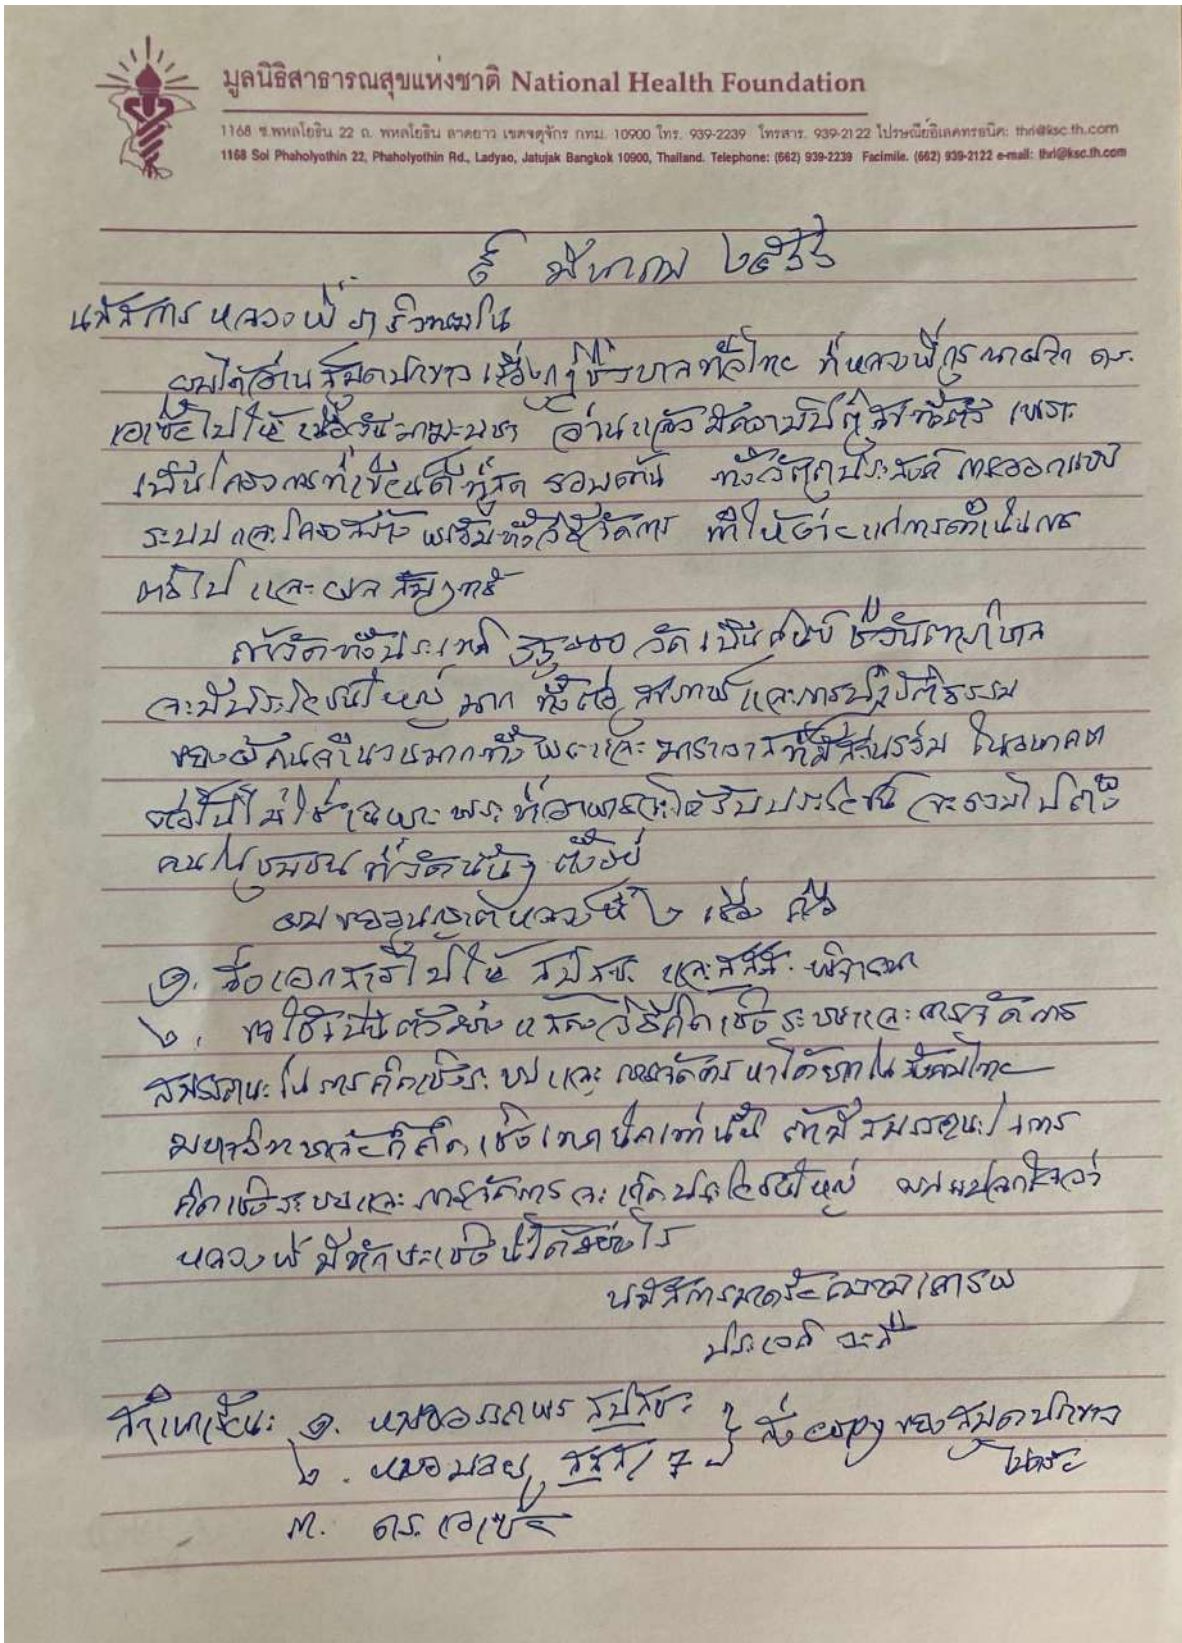 มูลนิธิสาธารณสุขแห่งชาติ National Health Foundation
1168 ซ.พหลโยธิน 22 ถ. พหลโยธิน ลาดยาว เขตจตุจักร กทม. 10900 โทร. 939-2239 โทรสาร. 939-2122 ไปรษณีย์อิเลคทรอนิค: thri@ksc.th.com
1168 Soi Phaholyothin 22, Phaholyothin Rd., Ladyao, Jatujak Bangkok 10900, Thailand. Telephone: (662) 939-2239 Facimile. (662) 939-2122 e-mail: thri@ksc.th.com
๕ มีนาคม ๒๕๖๖
นมัสการ หลวงพี่
ผมได้อ่านสมุดปกขาว เรื่องกุฏิชีวาบาลทั่วไทย ที่หลวงพี่กรุณาฝาก ดร.
เอเซ้ไปให้ เมื่อวันมาฆะบูชา อ่านแล้วมีความปีติสุขทั้งตัว เพราะ
เป็นโครงการที่เขียนดีที่สุด รอบด้าน ทั้งวัตถุประสงค์ การออกแบบ
ระบบและโครงสร้าง พร้อมทั้งวิธีจัดการ ทำให้ง่ายแก่การดำเนินการ
ต่อไป และผลสัมฤทธิ์
ถ้าวัดทั่วประเทศ วัดเป็นศูนย์ชีวันตาภิบาล
จะมีประโยชน์ใหญ่มาก ทั้งต่อสุขภาพและการปฏิบัติธรรม
ของผู้คนจำนวนมากทั้งพระและฆราวาสที่มีส่วนร่วม ในอนาคต
ต่อไปไม่ใช่เฉพาะพระที่อาพาธจะได้รับประโยชน์ จะรวมไปถึง
คนในชุมชน ที่วัดนั้นๆ ตั้งอยู่
ผมขออนุญาตหลวงพี่ ๒ เรื่อง คือ
๑. ส่งเอกสารไปให้ สปสช. และ สสส. พิจารณา
๒. ขอใช้เป็นตัวอย่างแสดงวิธีคิดเชิงระบบและการจัดการ
สมรรถนะในการคิดเชิงระบบและการจัดการหาได้ยากในสังคมไทย
มหาวิทยาลัยก็คิดเชิงเทคนิคเท่านั้น ถ้ามีสมรรถนะในการ
คิดเชิงระบบและการจัดการจะเกิดประโยชน์ใหญ่ ผมแปลกใจว่า
หลวงพี่มีทักษะเชิงนี้ได้อย่างไร
นมัสการมาด้วยความเคารพ
ประเวศ วะสี
สำเนาเรียน ๑. หมอจรรถพร สปสช. ส่ง copy ของสมุดปกขาว
๒. หมอ สสส. ไปด้วย
๓. ดร. เอเซ้